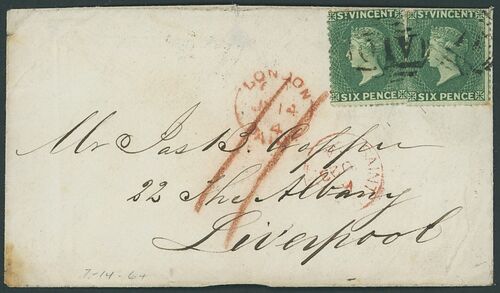 ST VINCENT ST VINCENT
SIX PENCE SIX PENCE
LONDON
Mr Jas B.
22 The Albany
Liverpool
7-14-64